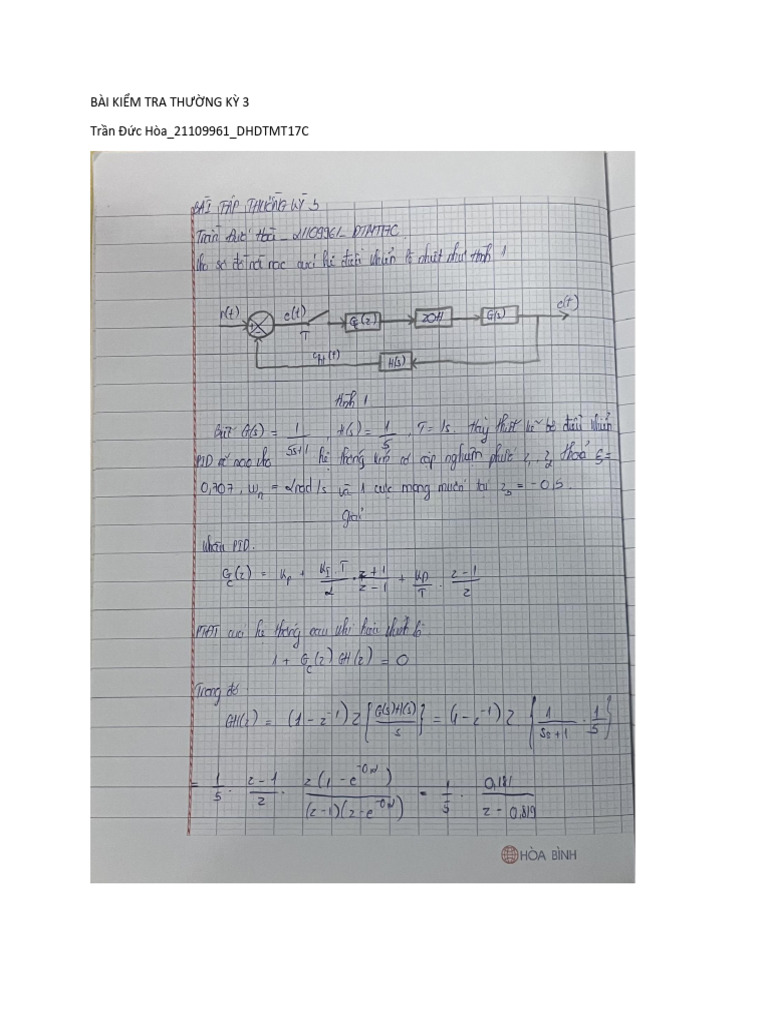 BÀI KIỂM TRA THƯỜNG KỲ 3
Trần Đức Hòa_21109961_DHDTMT17C
BÀI TẬP THƯỜNG KỲ 3
Trần Đức Hòa _ 21109961_ DTMT17C
Cho sơ đồ rời rạc của hệ điều khiển lò nhiệt như hình 1
r(t) e(t) Gc(z) ZOH G(s) c(t)
T
cht(t) H(s)
Hình 1
G(s) = 1/(5s+1), H(s) = 1/5, T = 1s. Hãy thiết kế bộ điều khiển
PID sao cho hệ thống kín có cặp nghiệm phức z1,2 thoả ξ =
0,707, ωn = 2rad/s và 1 cực mong muốn tại z3 = -0,5.
Giải
PID.
Gc(z) = Kp + (KI T)/2 . (z+1)/(z-1) + KD/T . (z-1)/z
PTĐT của hệ thống sau khi
1 + Gc(z) GH(z) = 0
Trong đó
GH(z) = (1 - z^-1) Z {G(s)H(s)/s} = (1 - z^-1) Z {1/(5s+1) . 1/5}
= 1/5 . (z-1)/z . z(1 - e^-0,2)/((z-1)(z - e^-0,2)) = 1/5 . 0,181/(z - 0,819)
HÒA BÌNH